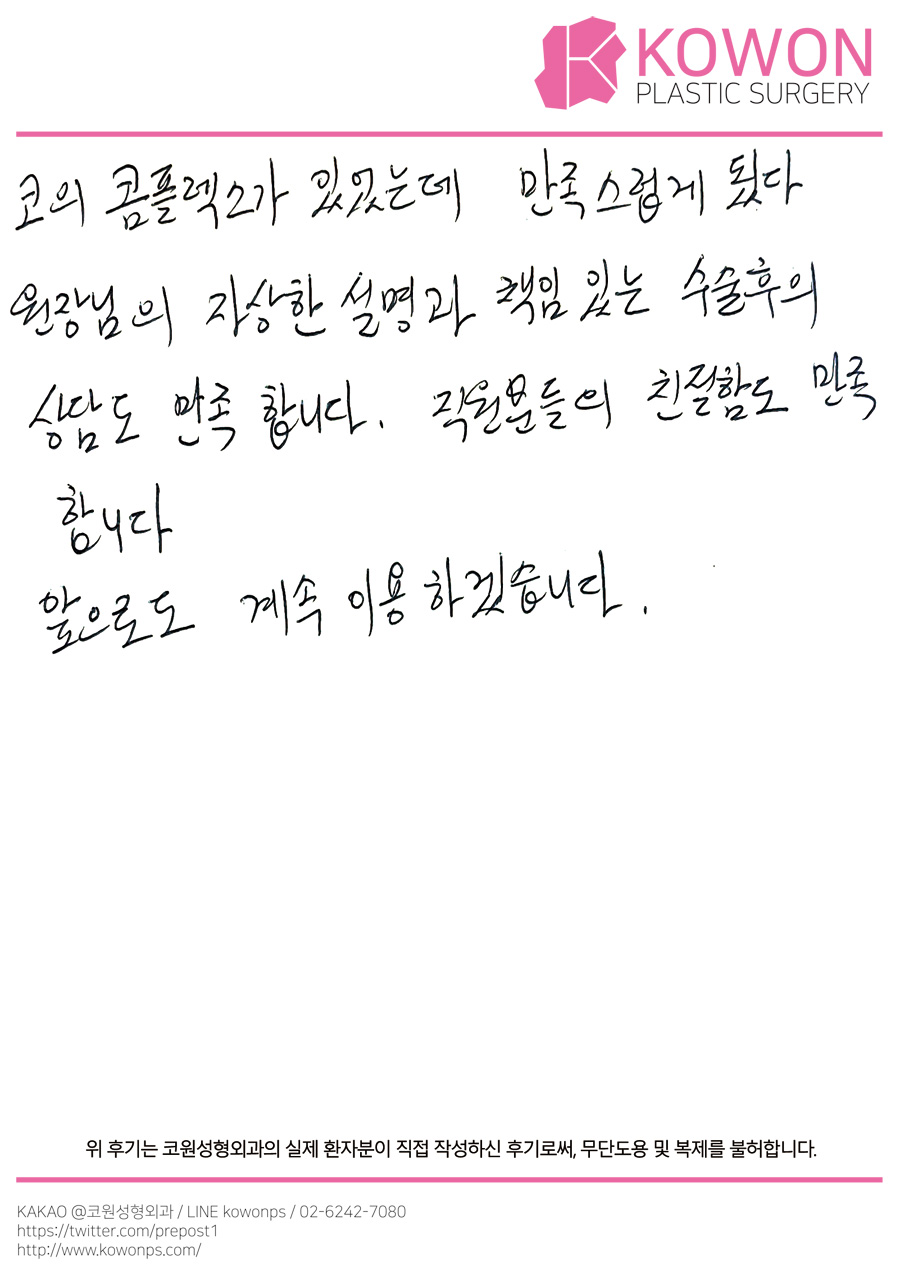 KOWON
PLASTIC SURGERY
코의 콤플렉스가 있었는데 만족스럽게 됬다
원장님의 자상한 설명과 책임 있는 수술후의
상담도 만족 합니다. 직원분들의 친절함도 만족
합니다
앞으로도 계속 이용 하겠습니다.
위 후기는 코원성형외과의 실제 환자분이 직접 작성하신 후기로써, 무단도용 및 복제를 불허합니다.
KAKAO @코원성형외과 / LINE kowonps / 02-6242-7080
https://twitter.com/prepost1
http://www.kowonps.com/